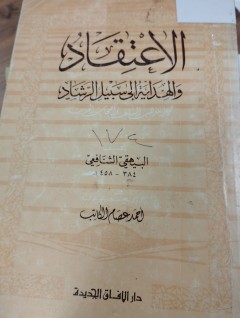 الاعتقاد
والهداية إلى سبيل الرشاد
البيهقي الشافعي
٣٨٤ - ٤٥٨
أحمد عصام الكاتب
دار الآفاق الجديدة